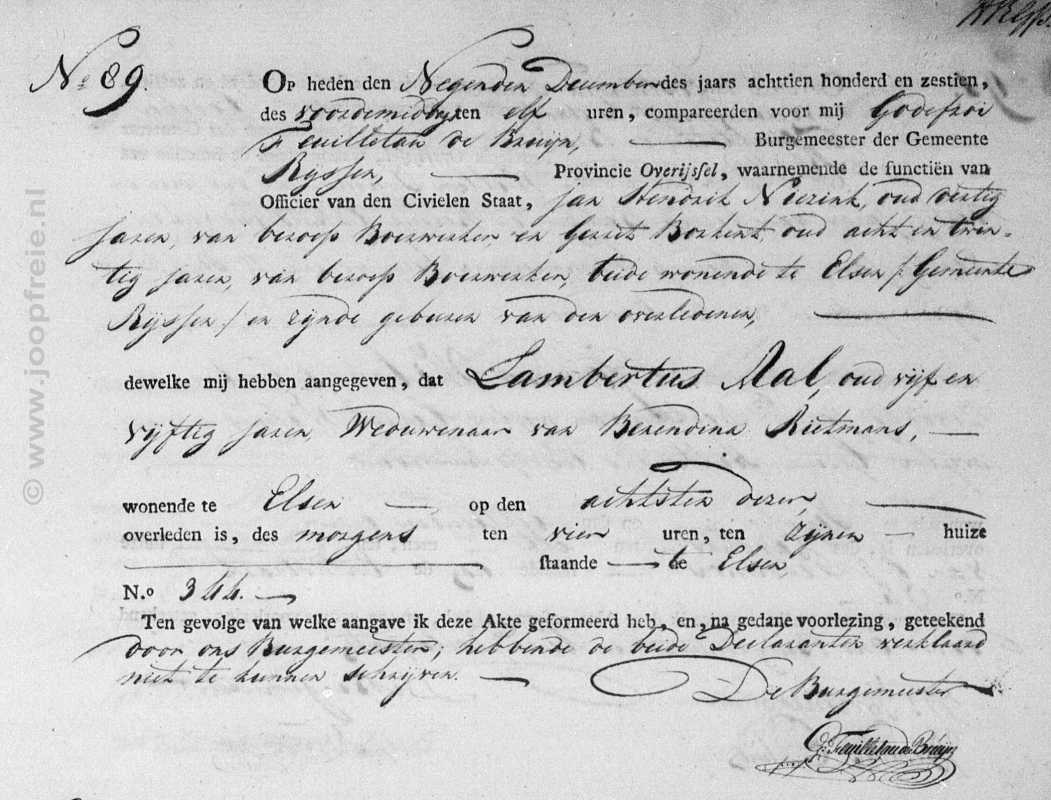 No 89.
Op heden den Negenden December des jaars achttien honderd en zestien,
des voordemiddags ten elf uren, compareerden voor mij Godefroi
Feuilletau de Bruijn, Burgemeester der Gemeente
Ryssen, Provincie Overijssel, waarnemende de functiën van
Officier van den Civielen Staat, Jan Hendrik Nierink, oud veertig
Jaren, van beroep Boerwerker en Gerrit Borkent, oud acht en twin-
tig Jaren, van beroep Boerwerker, beide wonende te Elsen /: Gemeente
Rijssen / en zijnde geburen van den overledenen,
dewelke mij hebben aangegeven, dat Lambertus Mal, oud vijf en
vijftig Jaren, Weduwenaar van Berendina Rietmans,
wonende te Elsen op den achtsten dezer,
overleden is, des morgens ten vier uren, ten zijnen huize
staande te Elsen
N.o 344.
Ten gevolge van welke aangave ik deze Akte geformeerd heb, en, na gedane voorlezing, geteekend
door ons Burgemeester; hebbende de beide Declaranten verklaard
niet te kunnen schrijven.
De Burgemeester
G. Feuilletau de Bruijn
© www.joopfreie.nl